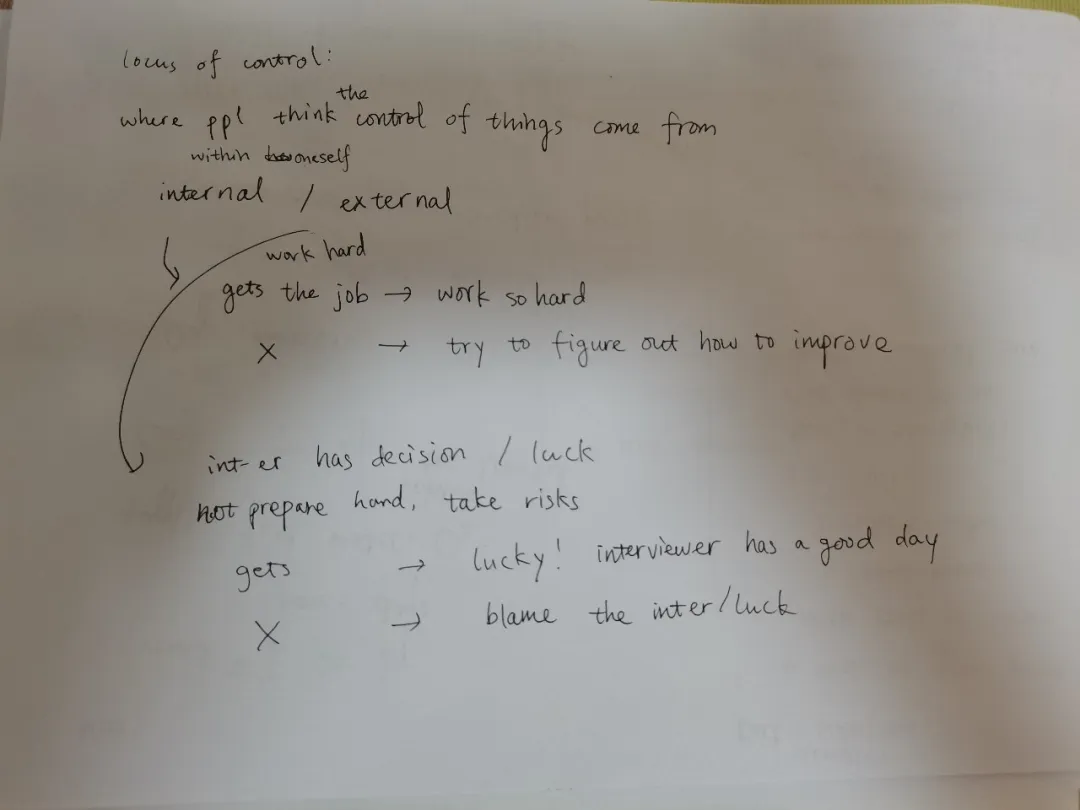 locus of control:
the
where ppl think control of things come from
within oneself
internal / external
work hard
gets the job → work so hard
X → try to figure out how to improve
int-er has decision / luck
not prepare hard, take risks
gets → lucky! interviewer has a good day
X → blame the inter/luck